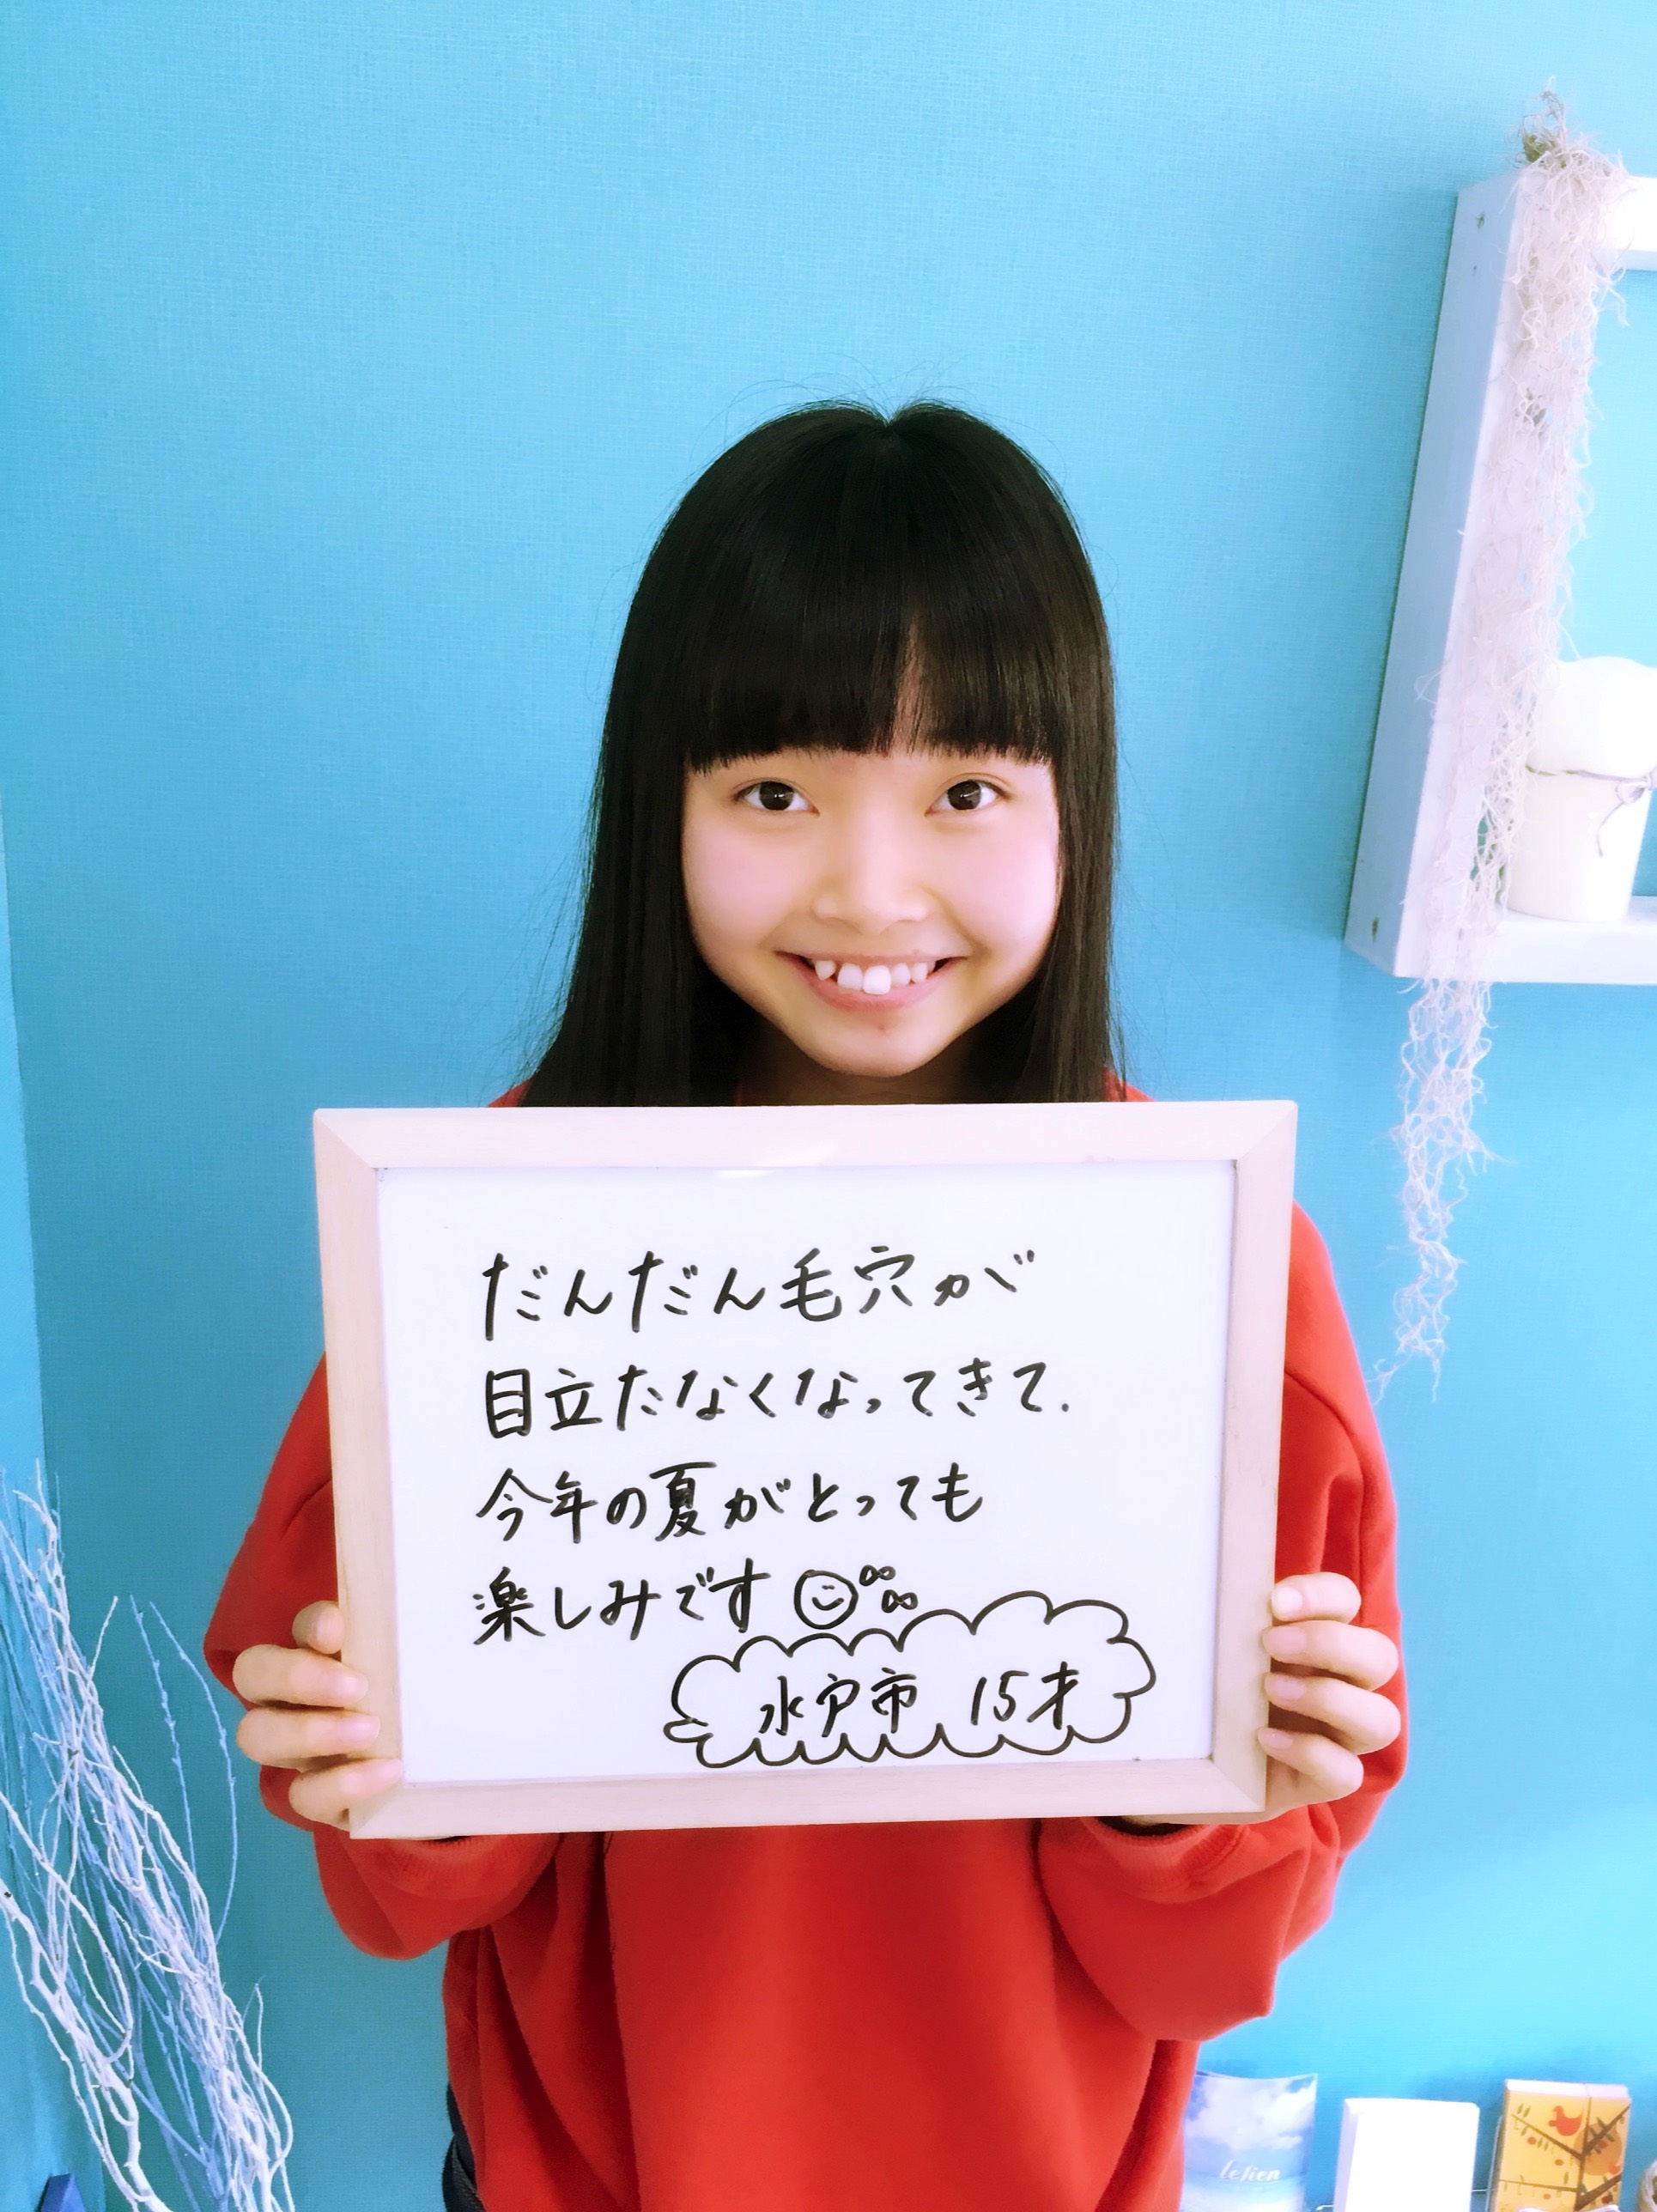 だんだん毛穴が
目立たなくなってきて.
今年の夏がとっても
楽しみです
水戸市 15才
lelien